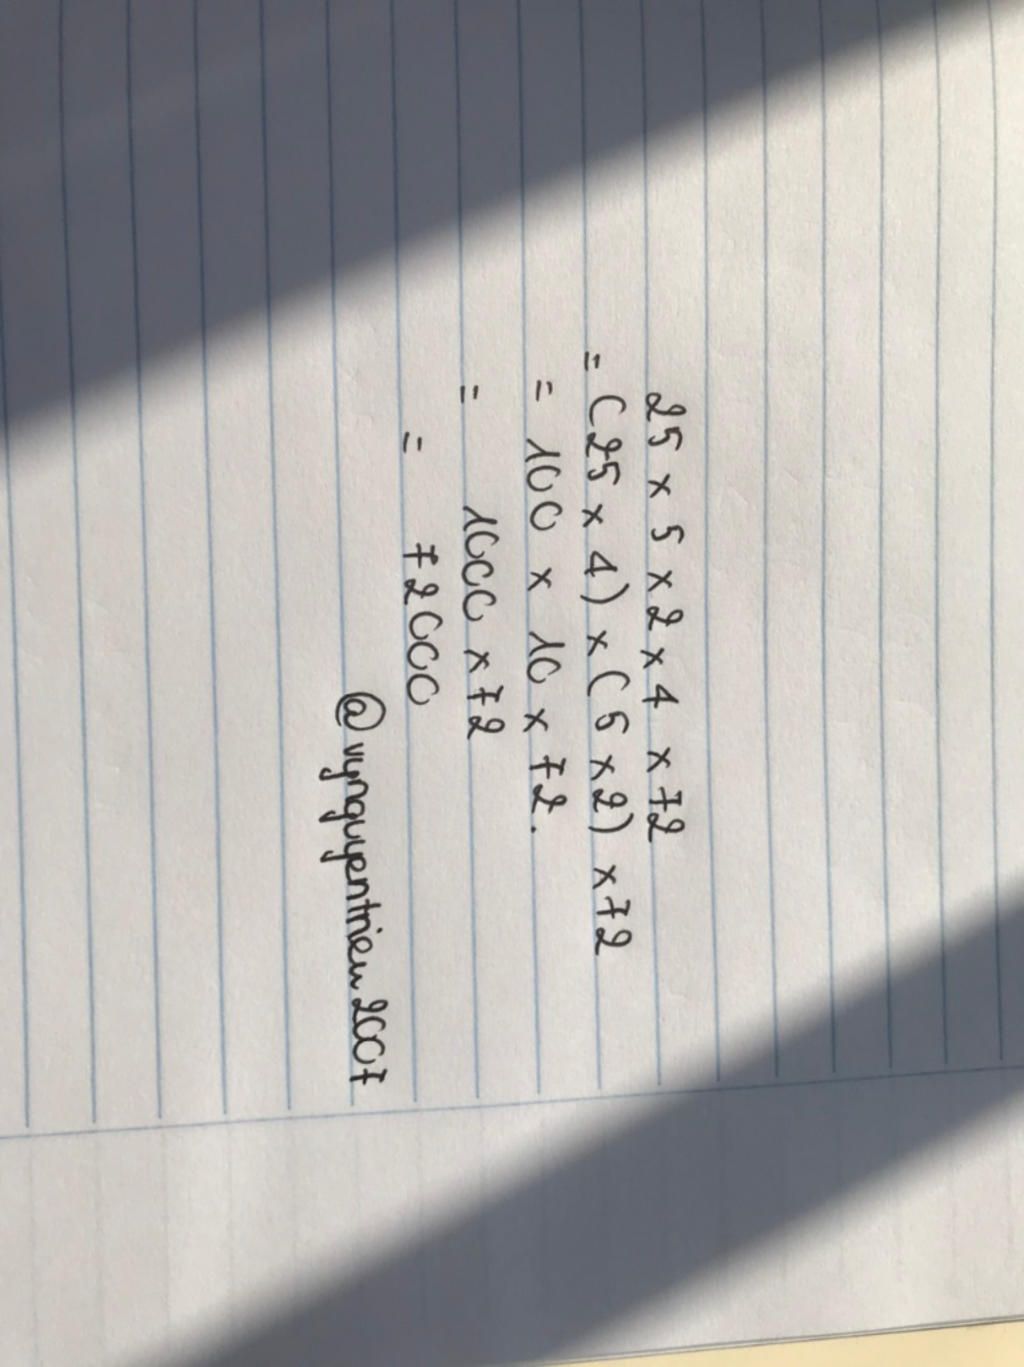 25 x 5 x 2 x 4 x 72
= (25 x 4) x (5 x 2) x 72
= 100 x 10 x 72.
= 1000 x 72
= 72000
@vynguyentrieu2007